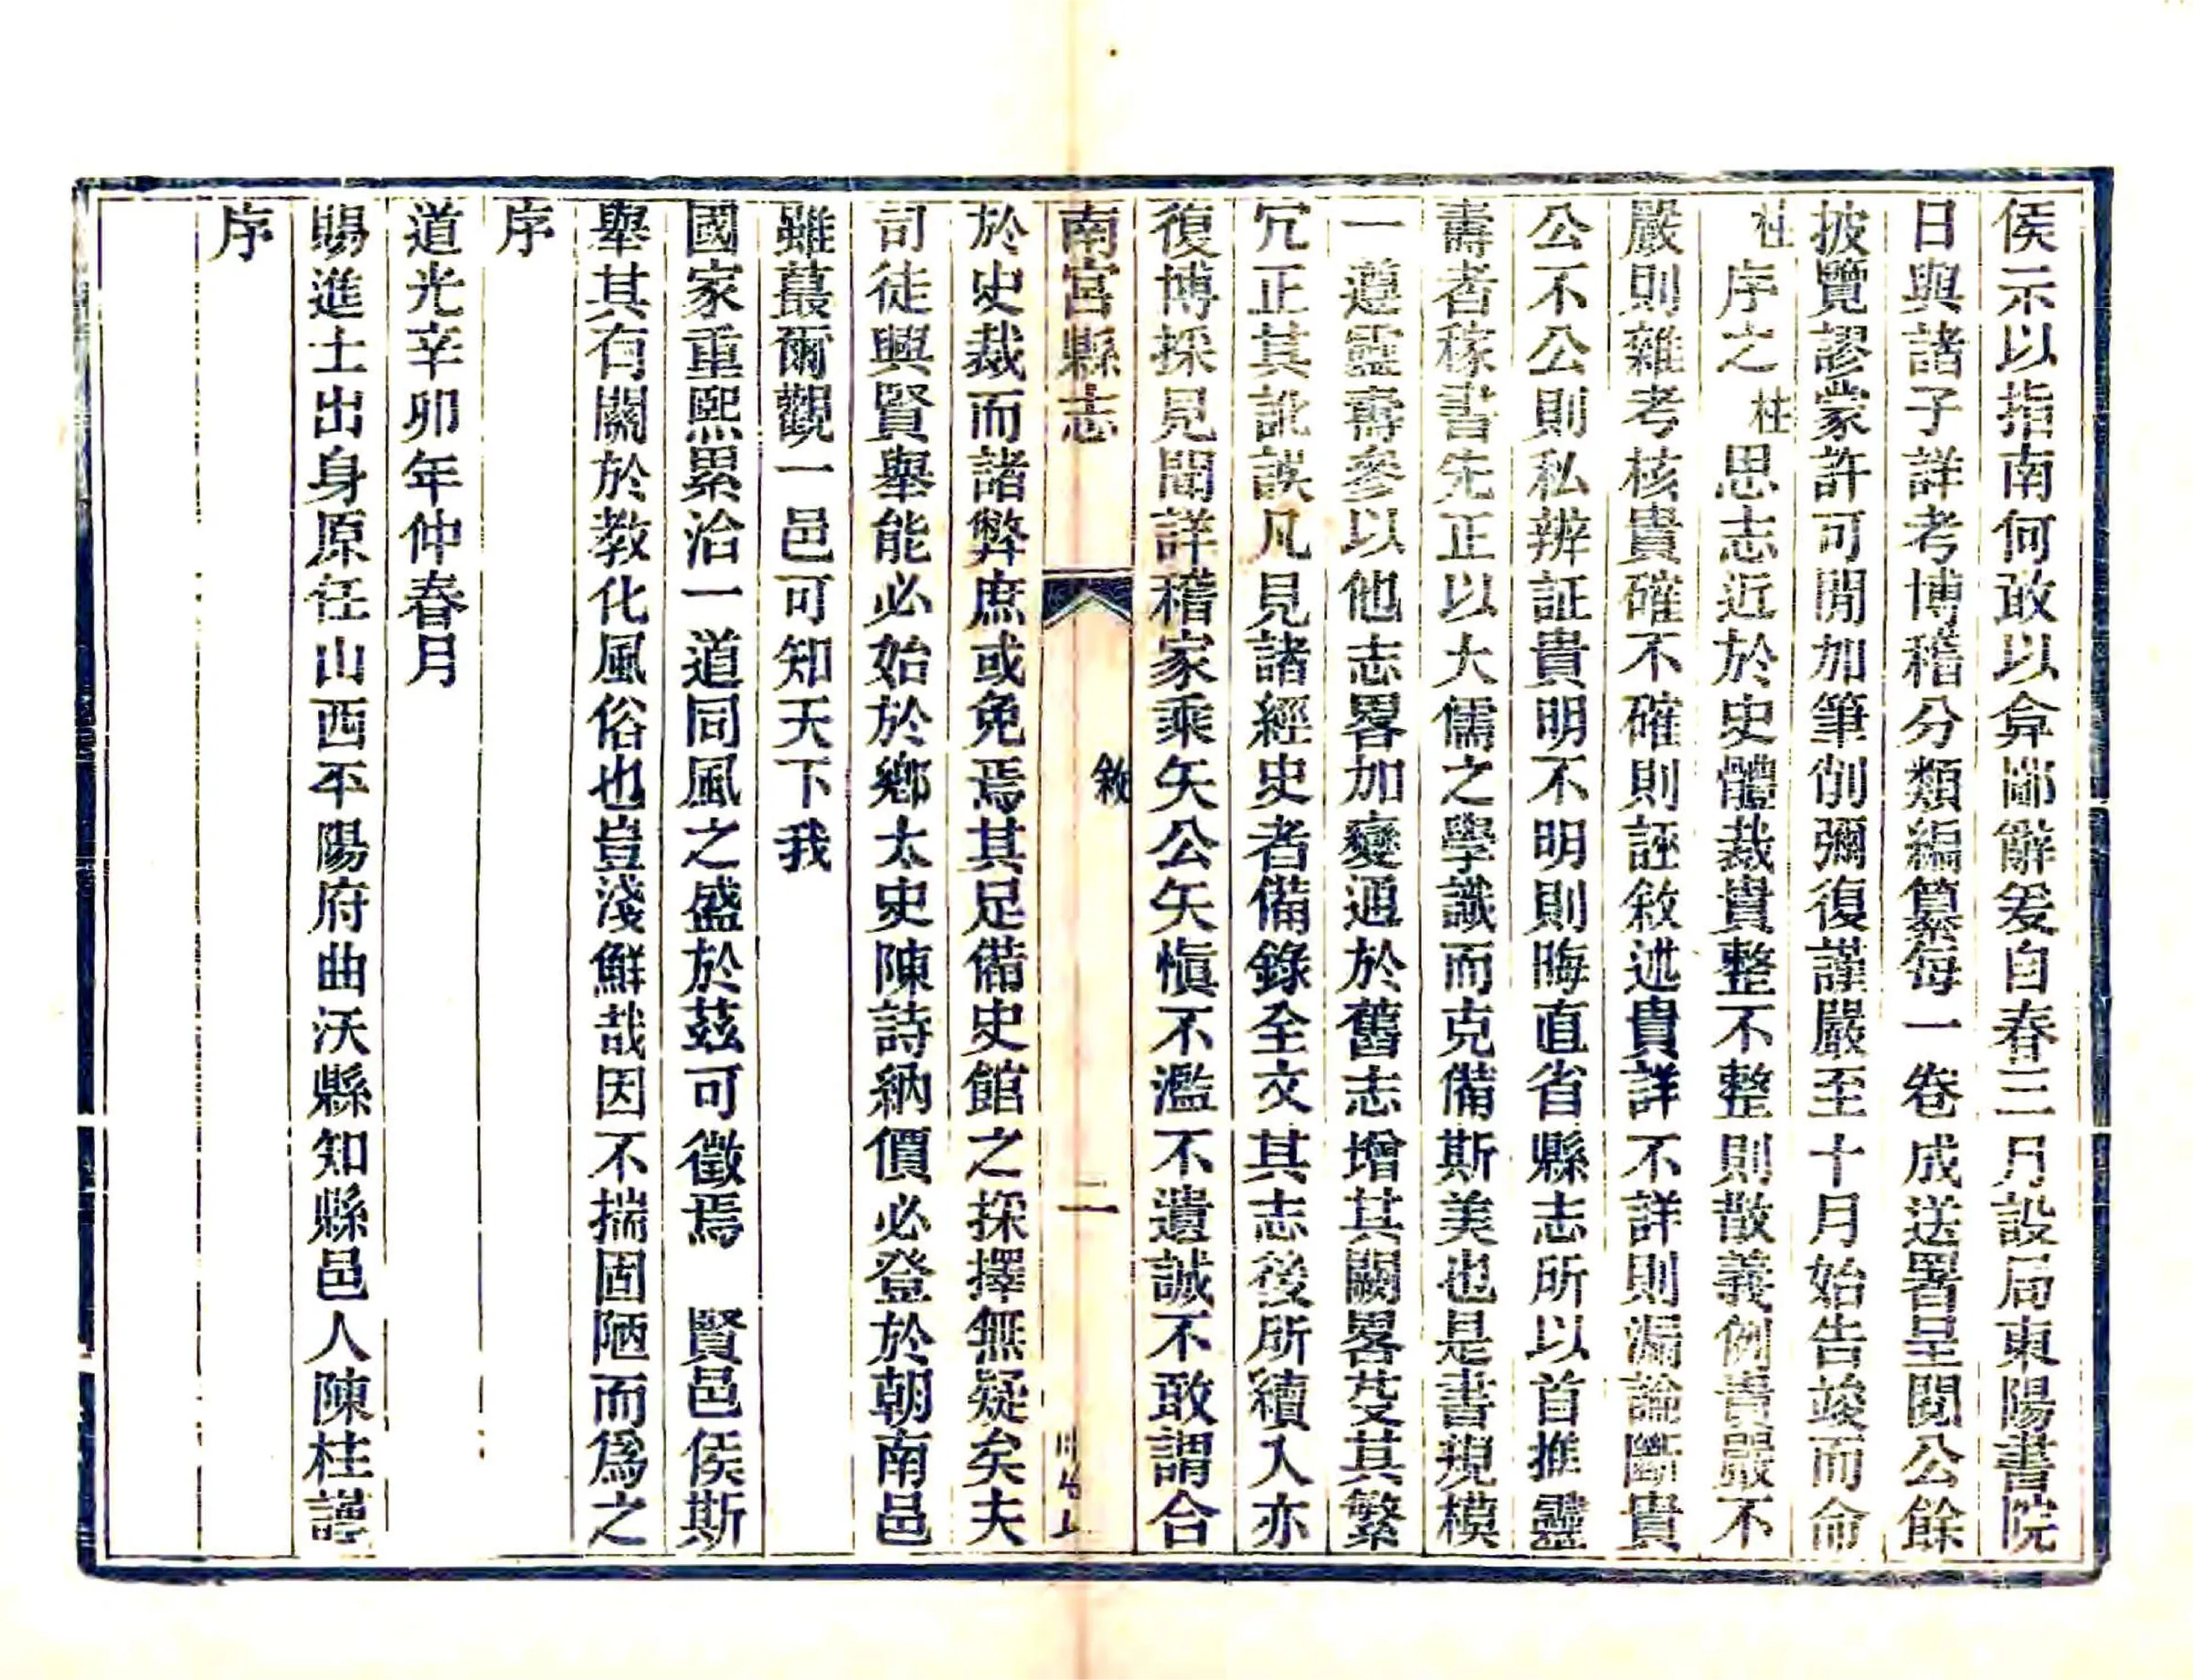 侯示以指南何敢以弇鄙辭爰自春三月設局東陽書院
日與諸子詳考博稽分類編纂每一卷成送署呈閱公餘
披覽謬蒙許可閒加筆削彌復謹嚴至十月始告竣而命
桂序之桂思志近於史體裁貴整不整則散義例貴嚴不
嚴則雜考核貴確不確則誣敘述貴詳不詳則漏論斷貴
公不公則私辨証貴明不明則晦直省縣志所以首推靈
壽者稼書先正以大儒之學識而克備斯美也是書規模
一遵靈壽參以他志畧加變通於舊志增其闕畧芟其繁
冗正其訛誤凡見諸經史者備錄全文其志後所續入亦
復博採見聞詳稽家乘矢公矢愼不濫不遺誠不敢謂合
南宮縣志
敘
二
於史裁而諸弊庶或免焉其足備史館之採擇無疑矣夫
司徒興賢舉能必始於鄉太史陳詩納價必登於朝南邑
雖蕞爾觀一邑可知天下我
國家重熙累洽一道同風之盛於茲可徵焉 賢邑侯斯
舉其有關於教化風俗也豈淺鮮哉因不揣固陋而爲之
序
道光辛卯年仲春月
賜進士出身原任山西平陽府曲沃縣知縣邑人陳桂謹
序